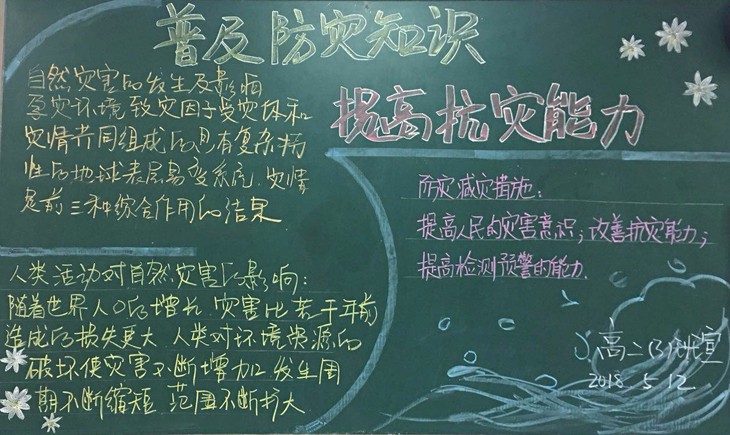 普及防灾知识
提高抗灾能力
自然灾害的发生及影响
孕灾环境致灾因子受灾体和
灾情共同组成的具有复杂病
性的地球表层易变系统,灾情
是前三种综合作用的结果
人类活动对自然灾害的影响:
随着世界人口的增长,灾害比若干年前
造成的损失更大 人类对环境资源的
破坏使灾害不断增加,发生周
期不断缩短 范围不断扩大
防灾减灾措施:
提高人民的灾害意识;改善抗灾能力;
提高检测预警的能力.
高二
宣
2018. 5. 12.